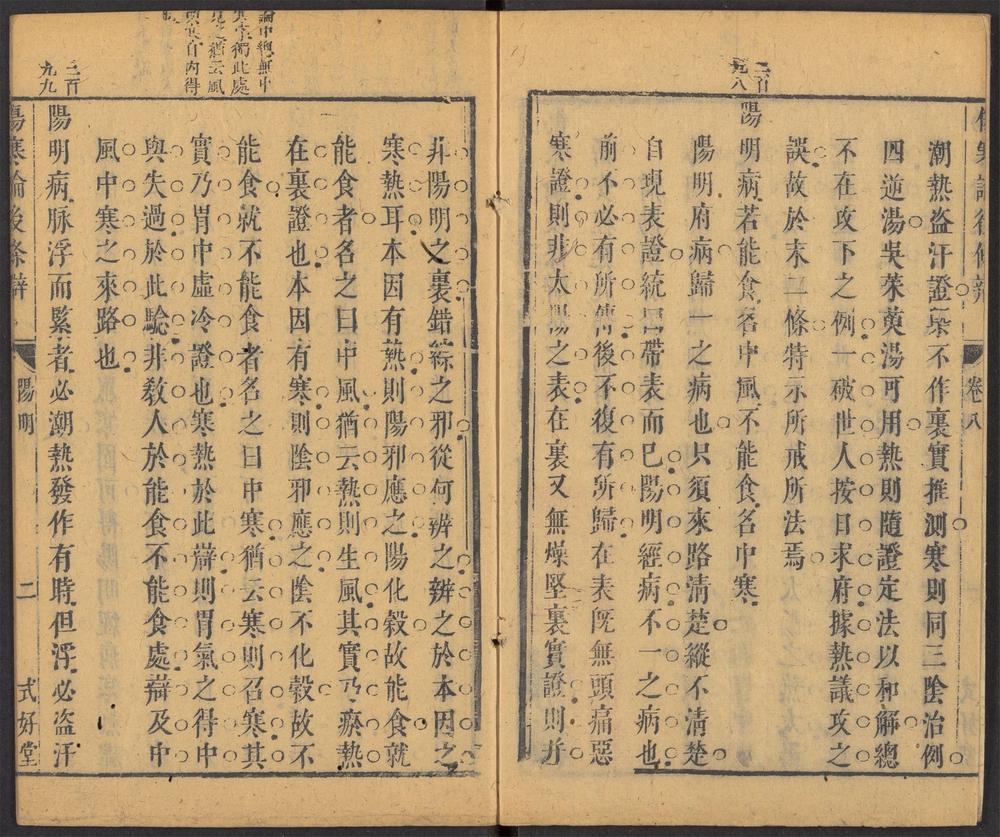 卷八
潮熱盜汗證槩不作裏實推測寒則同三陰治例
四逆湯吳茱萸湯可用熱則隨證定法以和解總
不在攻下之例一破世人按日求府據熱議攻之
誤故於末二條特示所戒所法焉
三百九八
陽明病若能食名中風不能食名中寒
陽明府病歸一之病也只須來路清楚縱不清楚
自現表證統曰帶表而已陽明經病不一之病也
前不必有所傳後不復有所歸在表旣無頭痛惡
寒證則非太陽之表在裏又無燥堅裏實證則并
論中總無中
寒字獨此處
見之猶云風
寒自內得
非陽明之裏錯綜之邪從何辨之辨之於本因之
寒熱耳本因有熱則陽邪應之陽化穀故能食就
能食者名之曰中風猶云熱則生風其實乃瘀熱
在裏證也本因有寒則陰邪應之陰不化穀故不
能食就不能食者名之曰中寒猶云寒則召寒其
實乃胃中虛冷證也寒熱於此辯則胃氣之得中
與失過於此驗非敎人於能食不能食處辯及中
風中寒之來路也
三百九九
陽明病脉浮而緊者必潮熱發作有時但浮必盜汗
傷寒論後條辯
陽明
二
式好堂